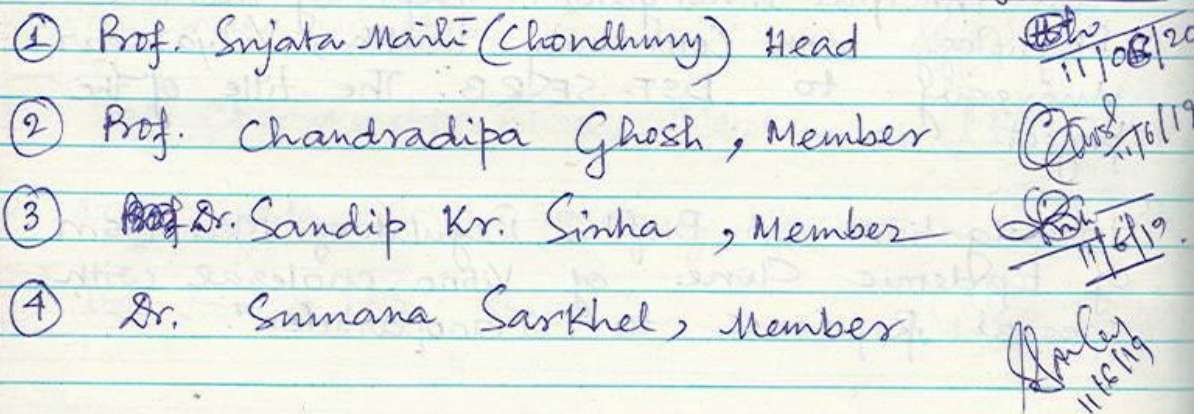 ① Prof. Sujata Maiti (Choudhury) Head 11/06/20
② Prof. Chandradipa Ghosh, Member 11/6/19
③ Dr. Sandip Kr. Sinha, Member 11/6/19.
④ Dr. Sumana Sarkhel, Member 11/6/19